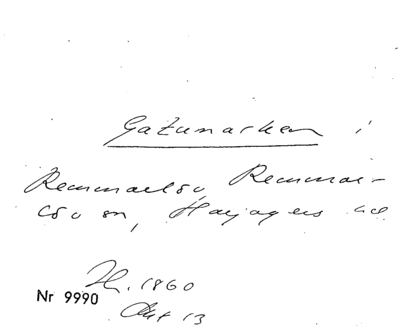 Gatumarken i
Remmarlöv, Remmar-
löv sn, Harjagers hd
1860
Nr 9990
Akt 13